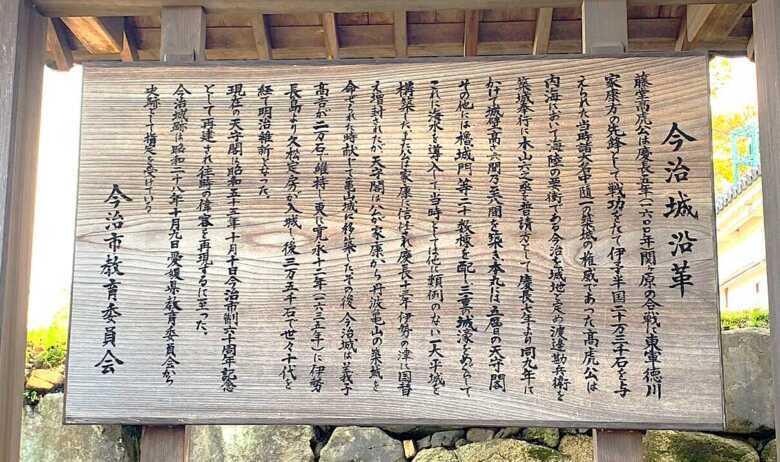 今治城沿革
藤堂高虎公は慶長五年(一六〇〇)年関ヶ原の合戦に東軍徳川
家康方の先鋒として戦功をたて伊予半国二十万三千石を与
えられた当時諸大名中随一の築城の権威であった高虎公は
内海において海陸の要衝である今治を城地と定め渡辺勘兵衛を
築城奉行に木山六之丞を普請方として慶長七年より同九年に
かけ城壁高さ六間乃至八間を築き本丸には五層の天守閣
その他には櫓城門等二十数棟を配し三重の城濠をめぐらして
これに海水を導入して当時としては他に類例のない一大平城を
構築したがまた公は家康に信任され慶長十三年伊勢の津に国替
え増封されたが天守閣は公が家康から丹波亀山の築城を
命ぜられた時献じて亀山城に移築したその後今治城は養子
高吉が二万石で維持し更に寛永十二年(一六三五年)に伊勢
長島より久松定房が入城し後三万五千石で世々十代を
経て明治維新となった。
現在の天守閣は昭和五十五年十月十日今治市制六十周年記念
として再建され往時の偉容を再現するに至った。
今治城跡は昭和二十八年十月九日愛媛県教育委員会から
史跡として指定を受けている
今治市教育委員会